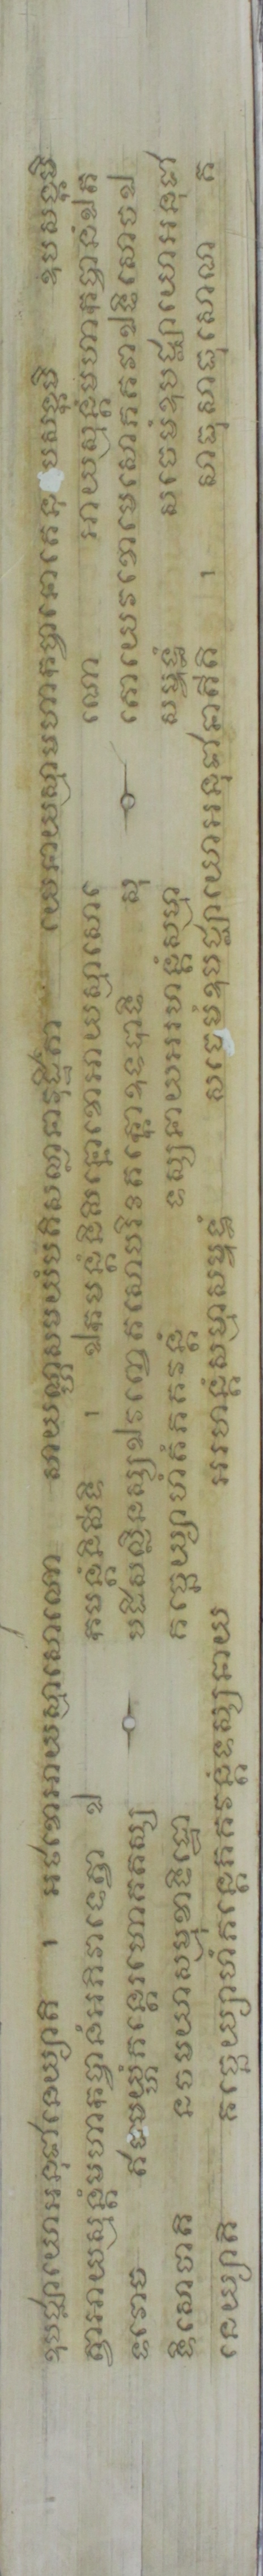 ឧបជ្ឈាយោអនុជានេយ្យាតិ ។ អថខោអាយស្មាសោណោ សាយណ្ហសមយំបតិសល្លានាវុដ្ឋិតោ យេនាយស្មាមហាកច្ចានោតេនុបសង្កមិ ឧបសង្កមិ
ត្វាអាយស្មន្តំមហាកច្ចានំអភិវាទេត្វា ឯ កមន្តំនិសីទិ ។ ឯកមន្តំនិសិន្នោខោអាយស្មាសោ ណោ អាយស្មន្តំមហាកច្ចានំឯត
ទវោច ឥធមយ្ហំភន្តេរហោគតស្ស បដិសល្លិនស្សឯវញ្ចេតសោបរិវិតក្កោឧទបាទិ សុ តោយេវខោមេសោភគវាឯទិសោចឯ
ទិសោចាតិ នចមយាសម្មុខាទិដ្ឋោ គច្ឆេយ្យាហំតំភគវន្តំ ទស្សនាយអរហន្តំសម្មា សម្ពុទ្ធំ សចេមំឧបជ្ឈាយោអនុជា
នេយ្យាតិ គច្ឆេយ្យាហំភន្តេភគវន្តំទស្សនាយ អរហន្តំសម្មាសម្ពុទ្ធំ សចេមំឧបជ្ឈាយោអនុជានាតីតិ ។ សាធុសាធុសោណ គ